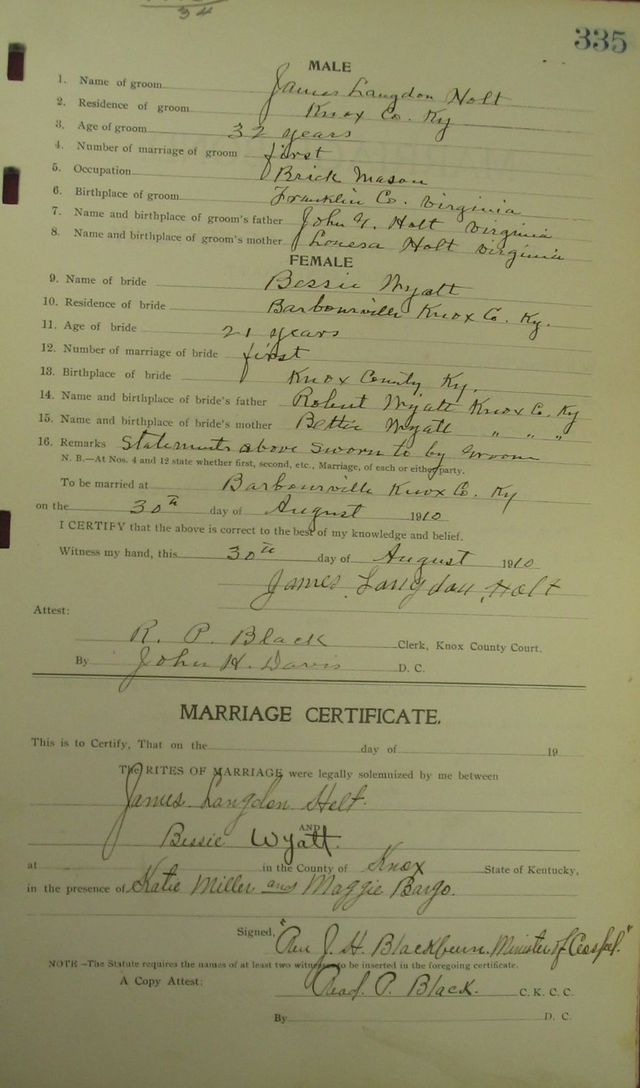 34
335
MALE
1. Name of groom James Langdon Holt
2. Residence of groom Knox Co. Ky
3. Age of groom 32 years
4. Number of marriage of groom first
5. Occupation Brick Mason
6. Birthplace of groom Franklin Co. Virginia
7. Name and birthplace of groom's father John Y. Holt Virginia
8. Name and birthplace of groom's mother Louesa Holt Virginia
FEMALE
9. Name of bride Bessie Wyatt
10. Residence of bride Barbourville Knox Co. Ky.
11. Age of bride 21 years
12. Number of marriage of bride first
13. Birthplace of bride Knox County Ky.
14. Name and birthplace of bride's father Robert Wyatt Knox Co. Ky
15. Name and birthplace of bride's mother Bettie Wyatt " " "
16. Remarks Statements above sworn to by groom
N. B.—At Nos. 4 and 12 state whether first, second, etc., Marriage, of each or either party.
To be married at Barbourville Knox Co. Ky
on the 30th day of August 1910
I CERTIFY that the above is correct to the best of my knowledge and belief.
Witness my hand, this 30th day of August 1910
James Langdon Holt
Attest:
R. P. Black Clerk, Knox County Court.
By John H. Davis D. C.
MARRIAGE CERTIFICATE.
This is to Certify, That on the day of 19
The RITES OF MARRIAGE were legally solemnized by me between
James Langdon Holt
AND
Bessie Wyatt.
at in the County of Knox State of Kentucky,
in the presence of Katie Miller and Maggie Bargo.
Signed, "Rev J. H. Blackburn. Minister of Gospel."
NOTE—The Statute requires the names of at least two witnesses to be inserted in the foregoing certificate.
A Copy Attest: Read P. Black. C. K. C. C.
By D. C.